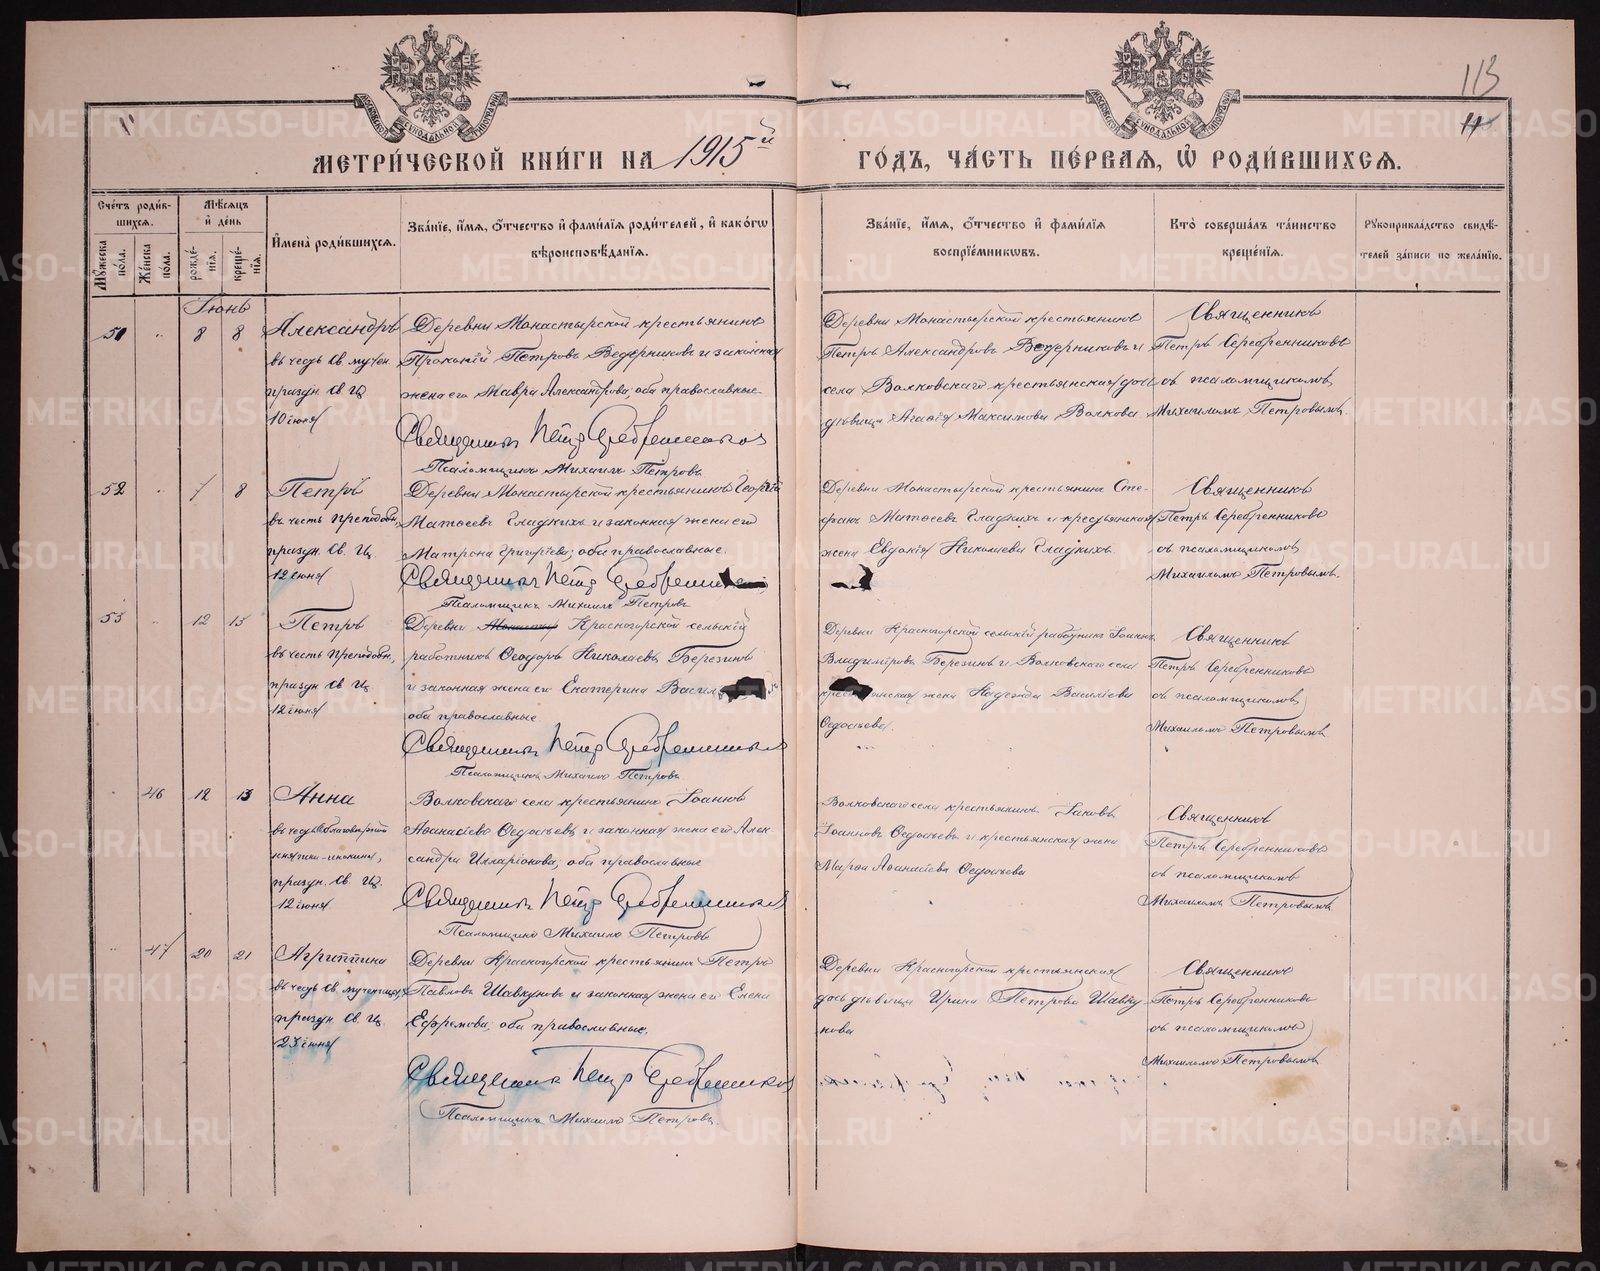 113
МЕТРИ́ЧЕСКОЙ КНИ́ГИ НА 1915й ГО́ДЪ, ЧА́СТЬ ПЕ́РВАЯ, Ѡ РОДИ́ВШИХСЯ.
Сче́тъ роди́в-
шихся.
Мѣ́сяцъ
и҆ де́нь
Мꙋ́жеска по́ла.
Же́нска по́ла.
рожде́-
нїя.
креще́-
нїя.
И҆мена̀ роди́вшихся.
Зва́нїе, и҆́мя, ѻ҆́тчество и҆ фами́лїя роди́телей, и҆ како́гѡ
вѣроисповѣ́данїя.
Зва́нїе, и҆́мя, ѻ҆́тчество и҆ фами́лїя
воспрїе́мникѡвъ.
Кто̀ соверша́лъ та́инство
креще́нїя.
Рꙋкоприкла́дство свидѣ́-
телей за́писи по жела́нїю.
Іюнь
51 8 8 Александръ
въ честь св. мучен.
праздн. св. Ц.
10 іюня
Деревни Монастырской крестьянинъ
Прокопій Петровъ Ведерниковъ и законная
жена его Мавра Александрова, оба православные
Священникъ Петръ Серебренниковъ
Псаломщикъ Михаилъ Петровъ
Деревни Монастырской крестьянинъ
Петръ Александровъ Ведерниковъ и
села Волковскаго крестьянская дочь
дѣвица Агаѳія Максимова Волкова
Священникъ
Петръ Серебренниковъ
съ псаломщикомъ
Михаиломъ Петровымъ.
52 7 8 Петръ
въ честь преподобн.
праздн. св. Ц.
12 іюня
Деревни Монастырской крестьянинъ Георгій
Матѳеевъ Гладкихъ и законная жена его
Матрона Григоріева; оба православные.
Священникъ Петръ Серебренниковъ
Псаломщикъ Михаилъ Петровъ
Деревни Монастырской крестьянинъ Сте-
фанъ Матѳеевъ Гладкихъ и крестьянская
жена Евдокія Николаева Гладкихъ.
Священникъ
Петръ Серебренниковъ
съ псаломщикомъ
Михаиломъ Петровымъ.
53 12 13 Петръ
въ честь преподобн.
праздн. св. Ц.
12 іюня
Деревни Красногорской сельскій
работникъ Ѳеодоръ Николаевъ Березинъ
и законная жена его Екатерина
оба православные
Священникъ Петръ Серебренниковъ
Псаломщикъ Михаилъ Петровъ
Деревни Красногорской сельскій работникъ Іоаннъ
Владиміровъ Березинъ и Волковскаго села
крестьянская жена Надежда Василіева
Ѳедосѣева.
Священникъ
Петръ Серебренниковъ
съ псаломщикомъ
Михаиломъ Петровымъ
46 12 13 Анна
въ честь благовѣрной
княгини-инокини,
праздн. св. Ц.
12 іюня
Волковскаго села крестьянинъ Іоаннъ
Аѳанасіевъ Ѳедосѣевъ и законная жена его Алек-
сандра Илларіонова; оба православные
Священникъ Петръ Серебренниковъ
Псаломщикъ Михаилъ Петровъ
Волковскаго села крестьянинъ Іаковъ
Іоанновъ Ѳедосѣевъ и крестьянская жена
Марѳа Аѳанасіева Ѳедосѣева
Священникъ
Петръ Серебренниковъ
съ псаломщикомъ
Михаиломъ Петровымъ
47 20 21 Агриппина
въ честь св. мученицы,
праздн. св. Ц.
23 іюня
Деревни Красногорской крестьянинъ Петръ
Павловъ Шавкуновъ и законная жена его Елена
Ефремова, оба православные.
Священникъ Петръ Серебренниковъ
Псаломщикъ Михаилъ Петровъ.
Деревни Красногорской крестьянская
дочь дѣвица Ирина Петрова Шавку-
нова
Священникъ
Петръ Серебренниковъ
съ псаломщикомъ
Михаиломъ Петровымъ
METRIKI.GASO-URAL.RU